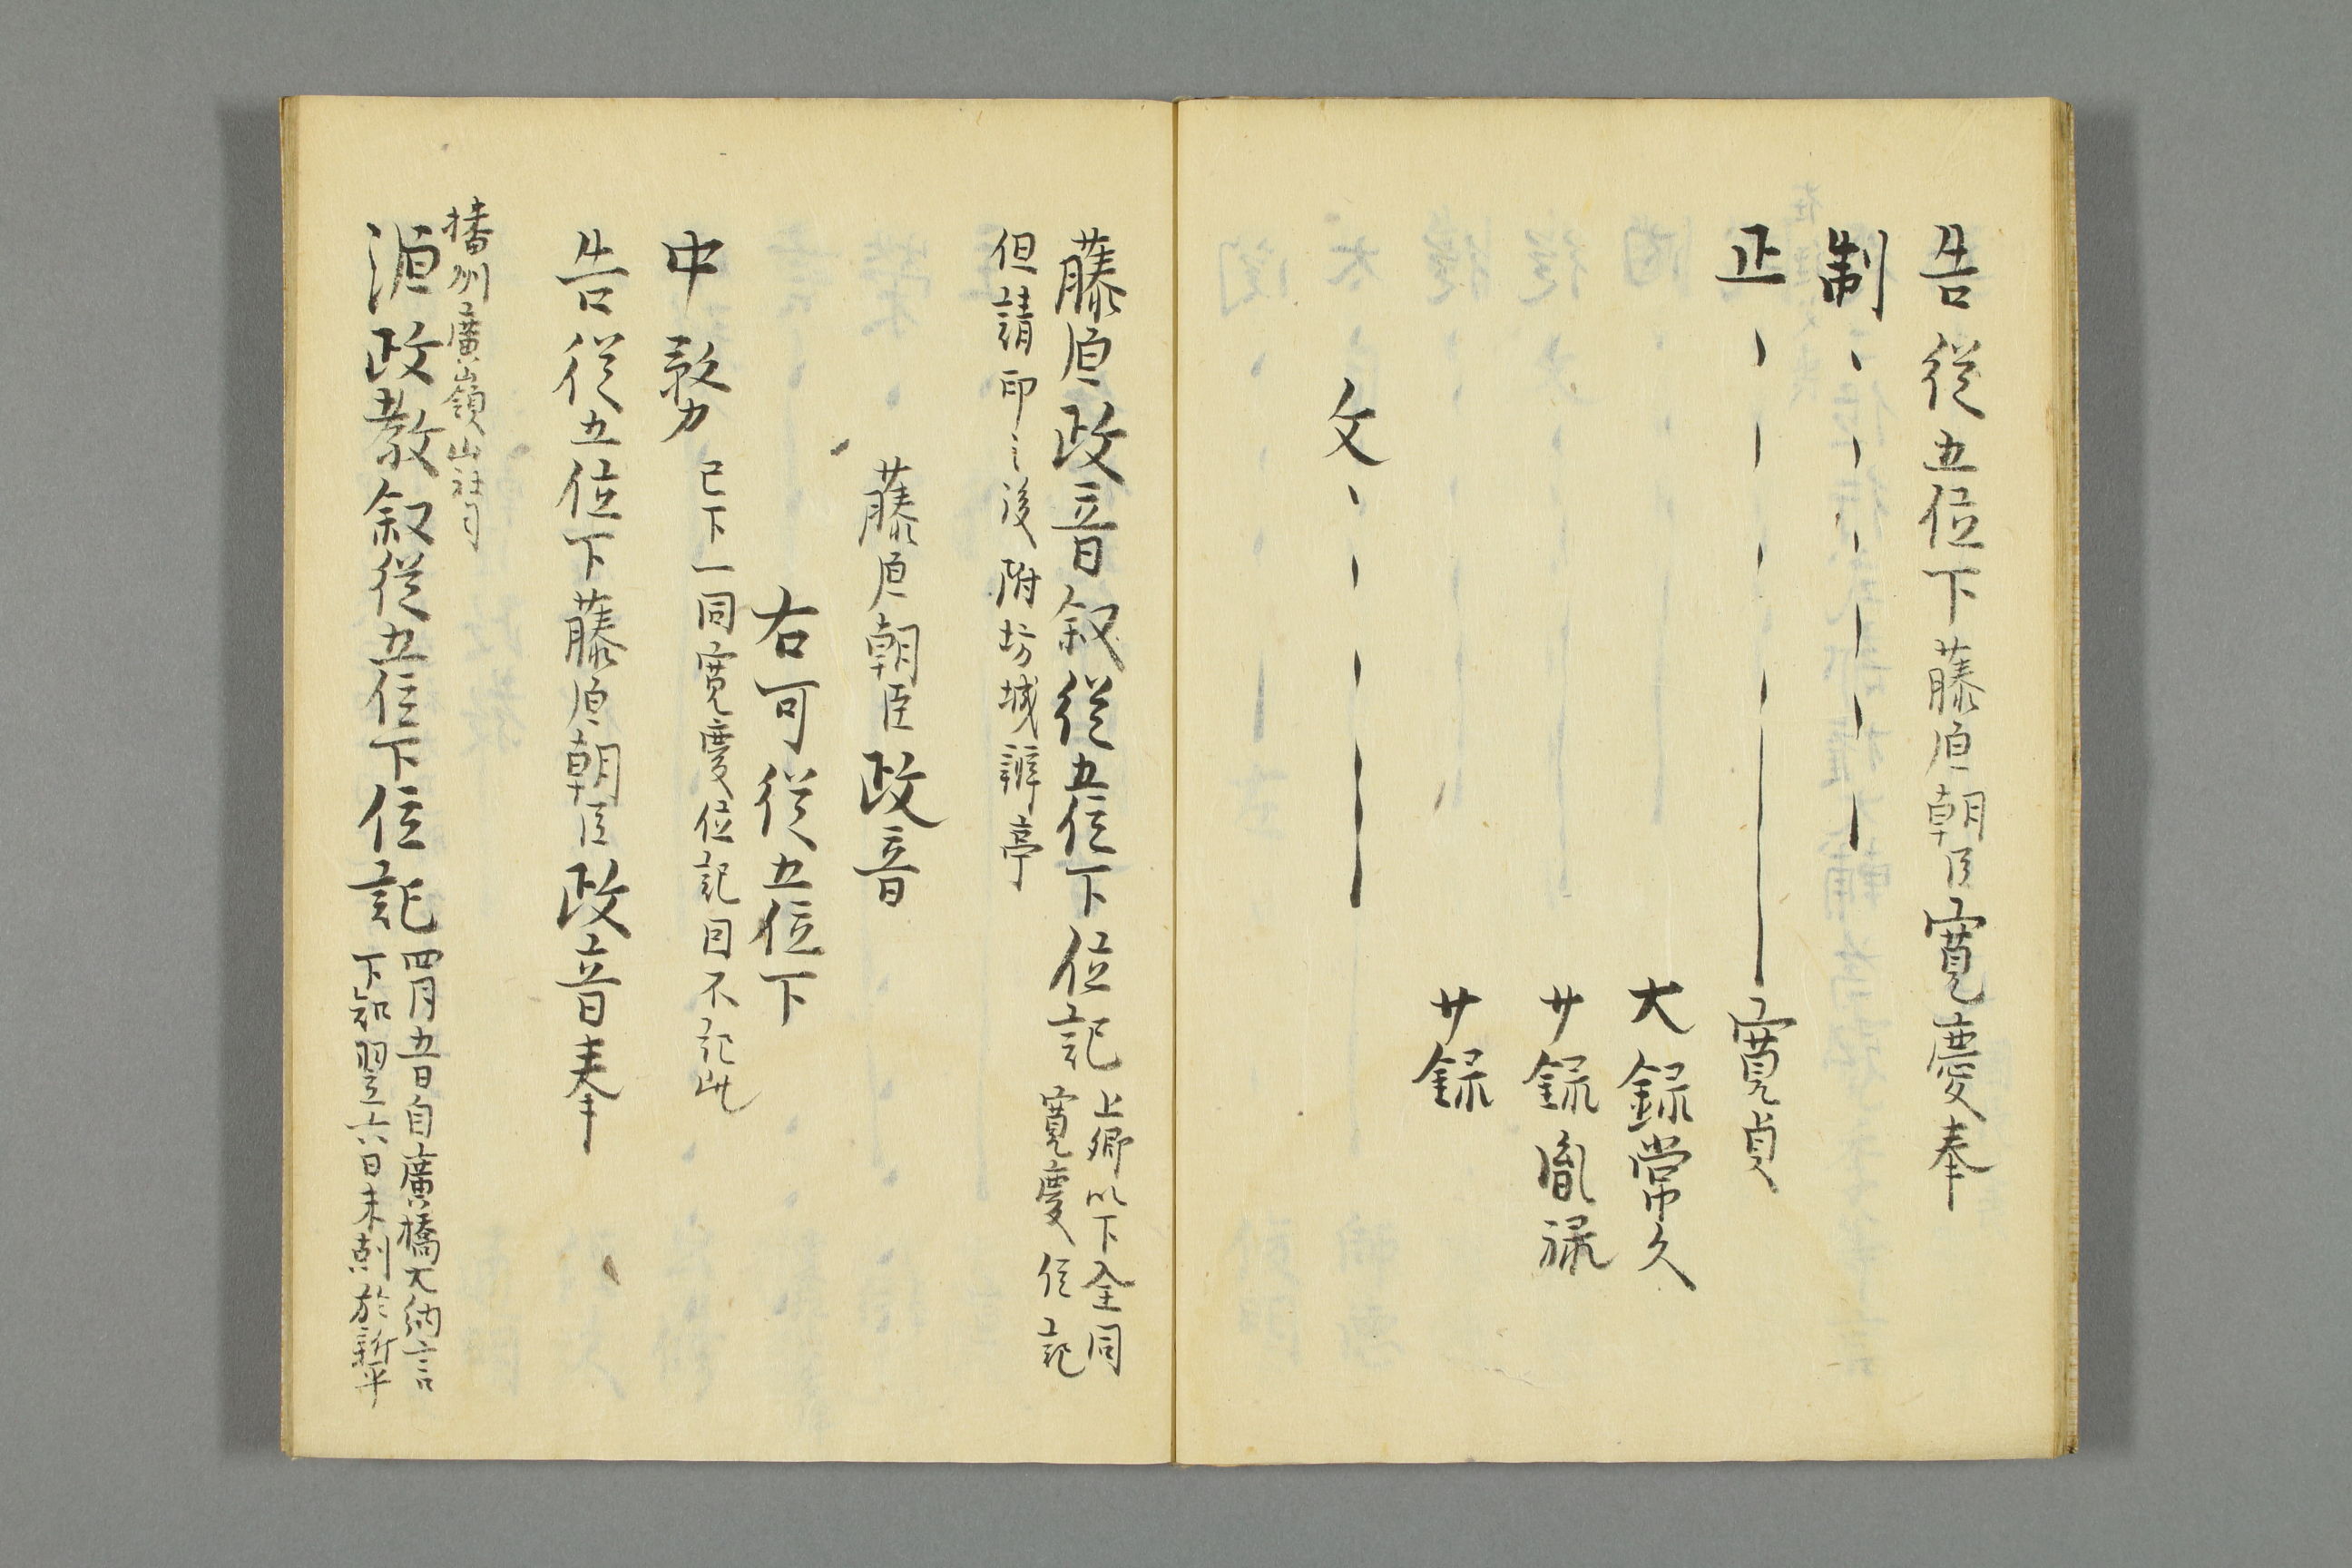 告従五位下藤原朝臣寛慶奉
制、、、、、、
正、、、、寛貞
大録常久
廾録胤禄
廾録
文、、、、
藤原政音叙従五位下位記上卿以下全同
寛慶位記
但請印之後附坊城辨亭
藤原朝臣政音
右可従五位下
中務已下一同寛慶位記目不記此
告従五位下藤原朝臣政音奉
播州廣嶺山社司
源政教叙従五位下位記四月五日自廣橋大納言
下知翌六日未剋於新平